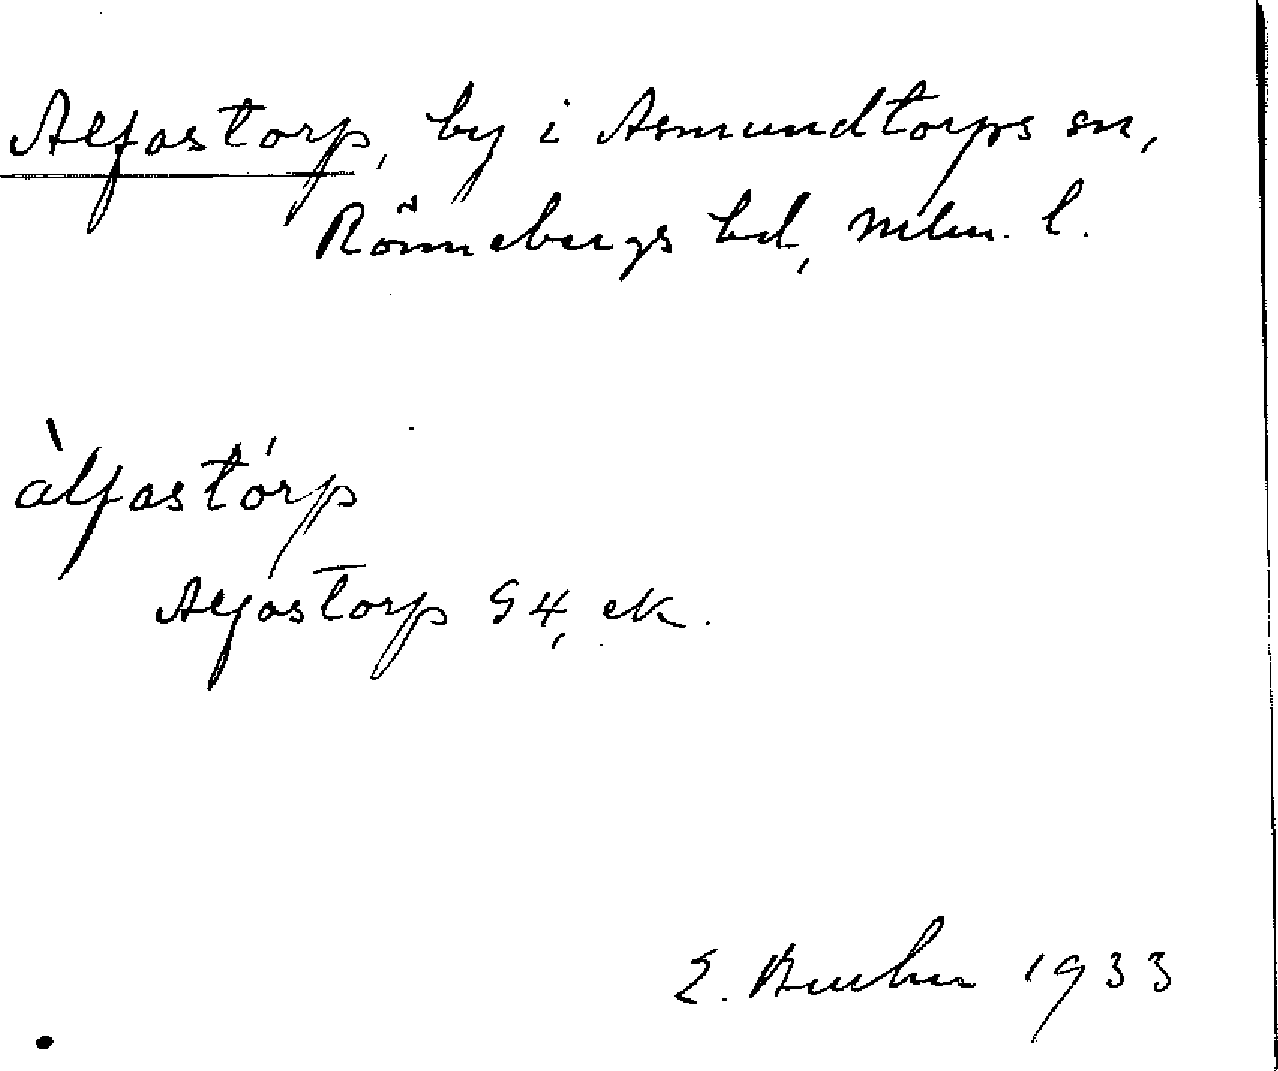 Alfastorp, by i Asmundtorps sn,
Rönnebergs hd, Mlm. l.
àlfastórp
Alfastorp G4, ek.
E. 1933